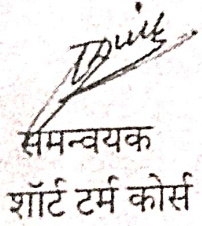 समन्वयक
शॉर्ट टर्म कोर्स